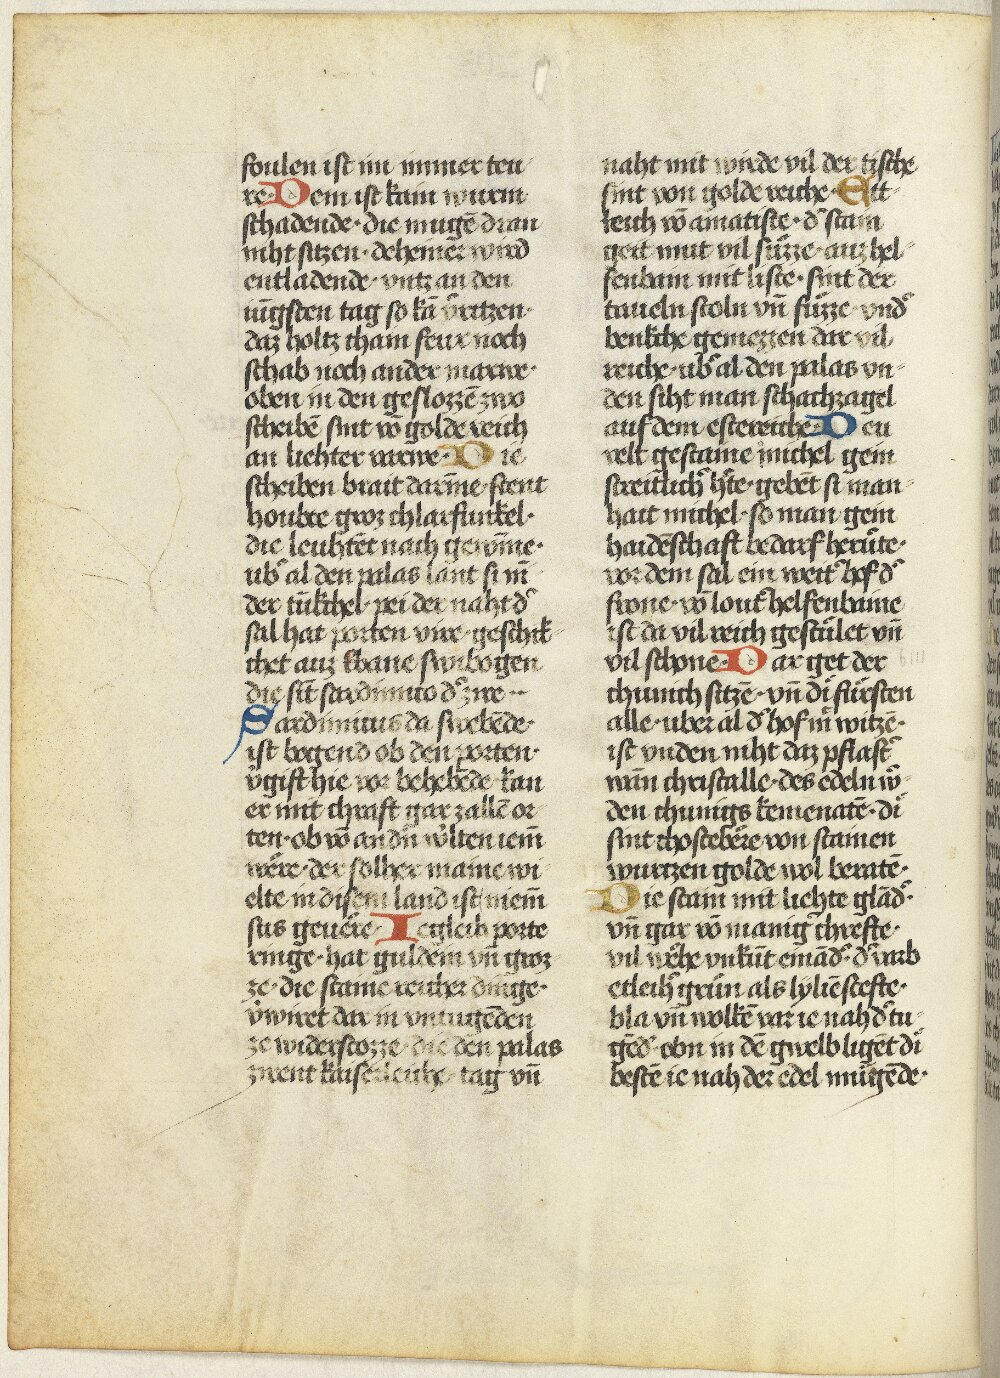 foulen ist im immer teu
re· Dem ist kain wurm
schadende· die mugē dran
niht sitzen· deheiner wird
entladende· vntz an den
iūgsten tag so kā v̓ritzen·
daz holtz chain feur noch
schab noch ander marwe·
oben in den geslozzē zwo
scheibē sint vō golde reich
an liehter varwe· Die
scheiben brait darīne stent
houbte groz chlarfunkel·
die leuhtēt nach gewīne·
vb̓ al den palas lānt si nī
der tūkchel· pei der naht d̓
sal hat porten vire· geschik
chet auz Ebane swibogen
die sīt sardinnito d̓ zire
Sardinnius da swebēde·
ist bogend ob den porten·
v̓gift hie vor behebēde kan
er mit chraft gar zallē or
ten· ob vō andn̄ wͤlten iem̄
wͤre· der solher maine wi
elte in disem land ist niem̄
sus geuͤre· Iegleib porte
ringe· hat guldein vn̄ groz
ze· die staine reicher dinge·
v̓wiret dar in vntugēden
ze widerstozze· die den palas
zwent kaiserleiche· tag vn̄
naht mit wirde vil der tische
sint von golde reiche· Ett
leich vō amatiste· d̓ stain
geit mut vil sūzze· auz hel
fenbain mit liste· sint der
taueln stoln vn̄ fūzze· vnd̓
benkche gemezzen dar vil
reiche· vb̓ al den palas vn
den siht man schachzagel
auf dem estereiche· Deu
velt gestaine michel gein
streitlich̓ hͤte· gebēt si man
hait michel· so man gein
haidēschaft bedarf berūte·
vor dem sal ein weit̓ hof d̓
frone· vō lout̓ helfenbaine
ist da vil reich gestūlet vn̄
vil schone· Dar get der
chunich sitzē· vn̄ di fūrsten
alle· uber al d̓ hof mͥ witzē·
ist vnden niht daz pflast̓
wān christalle· des edeln wͦ
den chunigs kemenatē· di
sint chostebͤre von stainen
wurtzen golde wol beratē·
Die stain mit liehte glād̓·
vn̄ gar vō manig̓ chrefte·
vil wͤhe vnkūt einād̓· d̓ varb
etleih̓ grūn als lyliēstefte·
bla vn̄ wolkē var ie nah d̓ tu
gēd̓· obn in dē gwelb ligēt di
bestē ie nah der edel mūgēde·